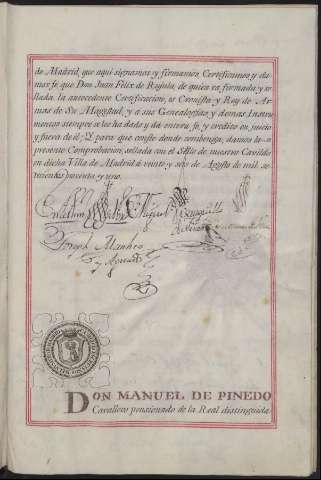 de Madrid, que aquí signamos y firmamos, Certificamos y da-
mos fe, que Don Juan Felix de Rujula, de quien va firmada y se-
llada la antecedente Certificacion, es Cronista y Rey de Ar-
mas de Su Magestad, y a sus Genealogías y demas Instru-
mentos siempre se les ha dado y da entera fe, y credito en juicio
y fuera de él; Y para que conste donde convenga, damos la
presente Comprobacion, sellada con el Sello de nuestro Cavildo
en dicha Villa de Madrid á veinte y seis de Agosto de mil se-
tecientos noventa y uno.
Joseph
DON MANUEL DE PINEDO
Cavallero pensionado de la Real distinguida